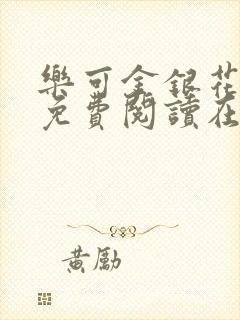 樂可金銀花
免費閱讀在
黃勵